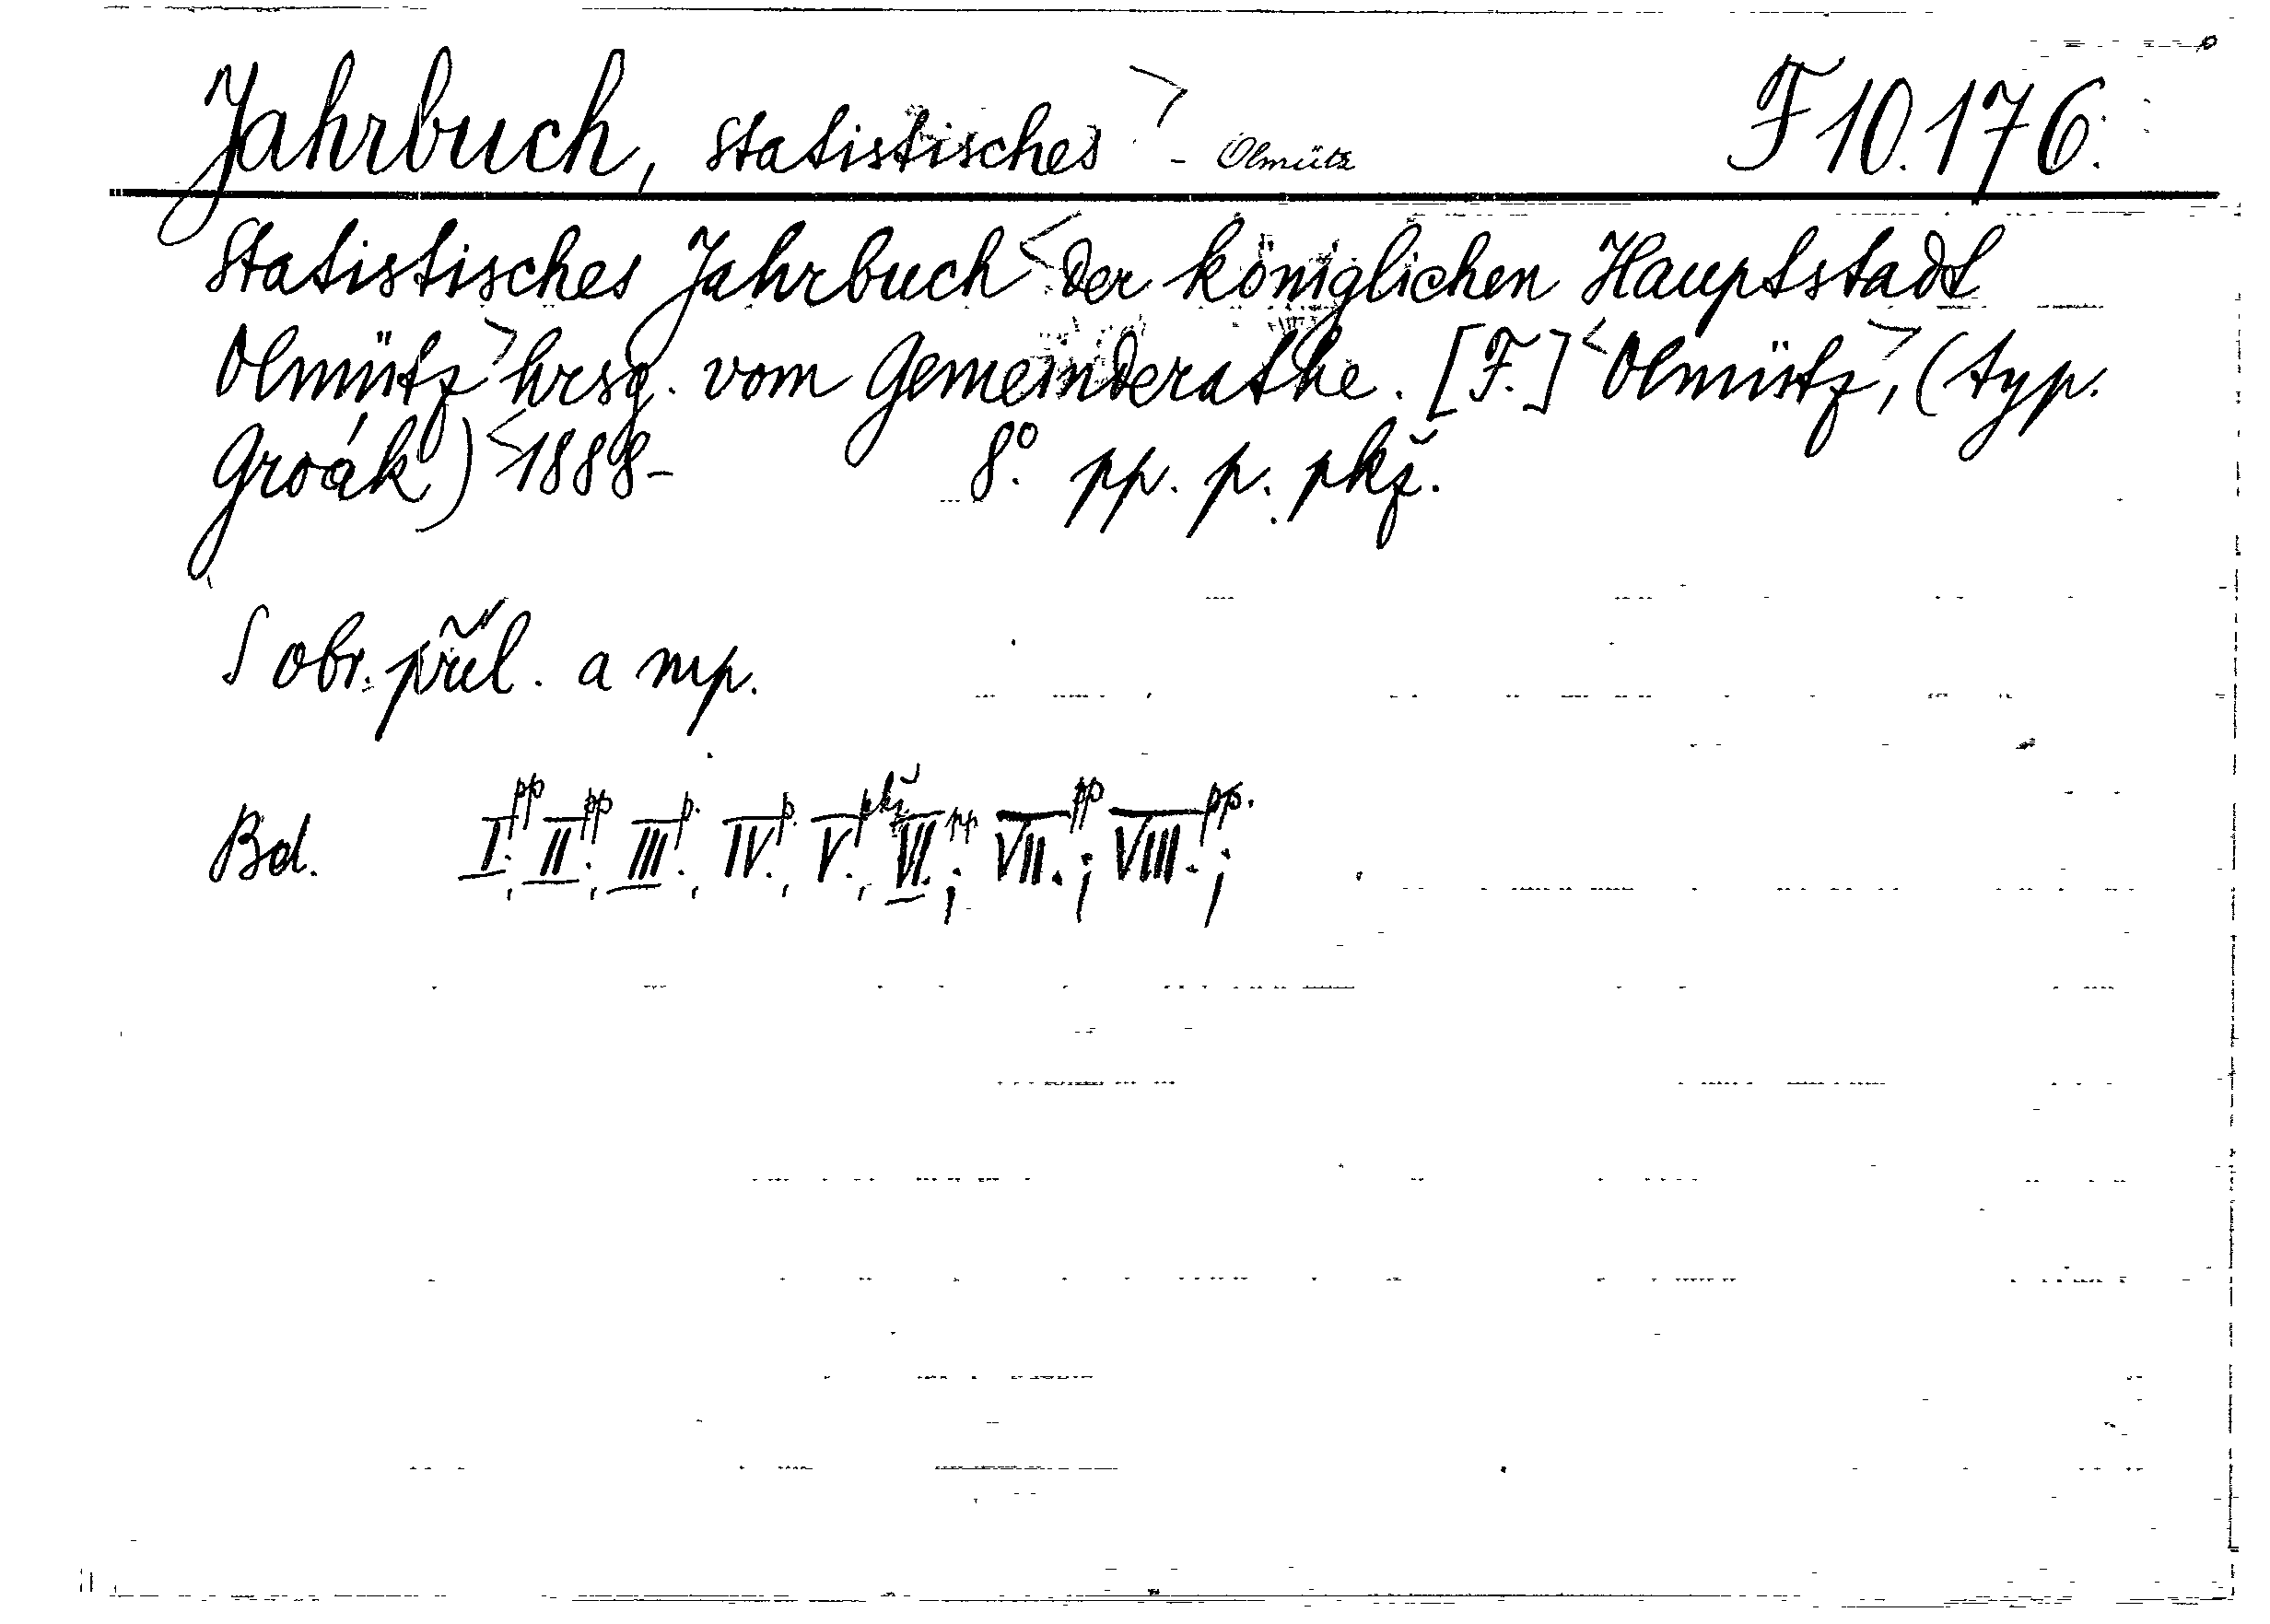 Jahrbuch, statistisches > - Olmütz F 10.176.
Statistisches Jahrbuch < der königlichen Hauptstadt
Olmütz > hrsg. vom Gemeinderathe. [F.] < Olmütz >, (typ.
Groák) < 1888- 8°. pp. p. pkž.
S obr. příl. a mp.
Bd. I.pp, II.pp, III.p., IV.p., V.pkž, VI.pp; VII.pp; VIII.pp.;